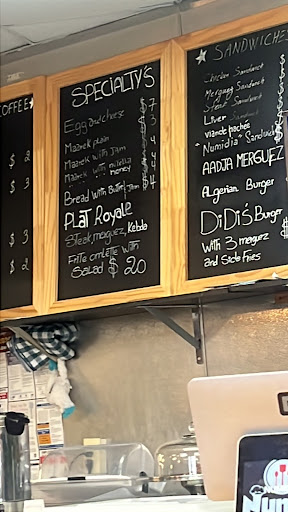 COFFEE
$ 2
$ 3
$ 3
$ 2
SPECIALTY'S
Egg and cheese $ 7
Maarek plain $ 3
Maarek with Jam $ 4
Maarek with nutella $
money
Bread with Butter, Jam $ 4
PLAT Royale
Steak, merguez, Kebda
Frite omlette with
Salad $ 20
SANDWICHES
Chicken Sandwich $
Merguez Sandwich $
Steak Sandwich $
Liver Sandwich $
viande hachés
Numidia Sandwich
AADJA MERGUEZ
Algerian Burger
DiDi'S Burger
With 3 merguez $
and Side fries